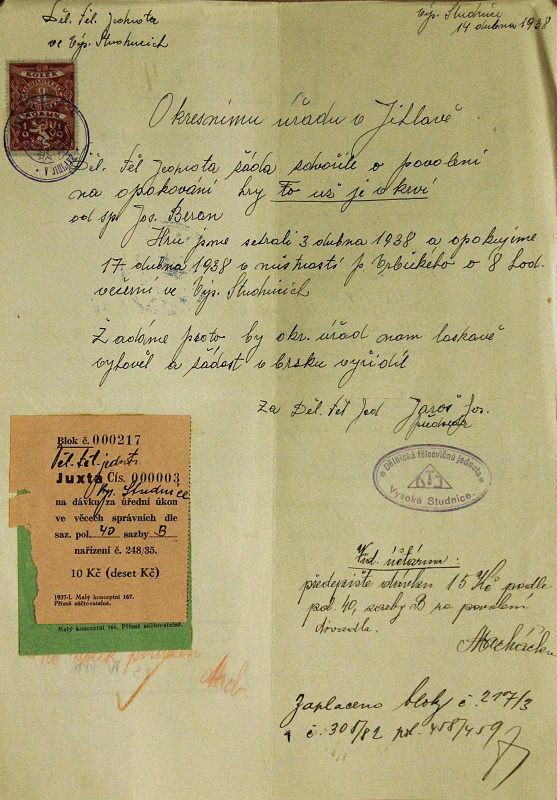 Děl. Těl. Jednota
ve Vys. Studnicích
Vys. Studnice
14 dubna 1938
KOLEK
Okresnímu úřadu v Jihlavě
Děl. Těl Jednota žáda zdvořile o povolení
na opakování hry to už je v krvi
od sp Jos. Beran
Hru jsme sehráli 3 dubna 1938 a opakujeme
17 dubna 1938 v místnosti p Vrbického o 8 hod.
večerní ve Vys. Studnicích
Žádáme proto by okr. úřad nam laskavě
vyhověl a žádost v brsku vyřídil
Za Děl. Těl Jed Jaroš Jos.
předseda
Dělnická tělocvičná jednota
DTJ
Vysoké Studnice.
Blok č. 000217
Děl. těl. jednota
Juxta Čís. 000003
Vys. Studnice
na dávku za úřední úkon
ve věcech správních dle
saz. pol. 40 sazby B
nařízení č. 248/35.
10 Kč (deset Kč)
1937-I. Malý konceptní 167.
Přísně súčtovatelné.
Malý konceptní 166. Přísně súčtovatelné.
účtárna:
předepište dávku 15 Kč podle
pol. 40, sazby B za povolení
divadla.
Macháčka
Zaplaceno bloky č. 217/3
č. 308/82 pol. 458/459